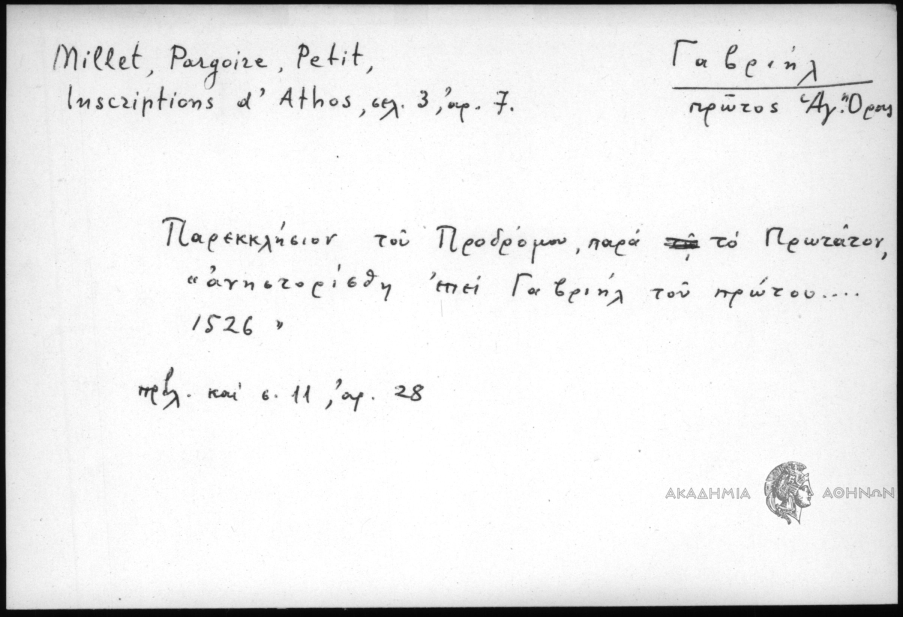 Millet, Pargoire, Petit,
Inscriptions d' Athos, σελ. 3, ἀρ. 7.
Γαβριήλ
πρῶτος Ἁγ. Ὄρους
Παρεκκλήσιον τοῦ Προδρόμου, παρά τό Πρωτᾶτον,
«ἀνηστορίσθη ἐπεί Γαβριήλ τοῦ πρώτου....
1526»
πρβλ. καί σ. 11, ἀρ. 28
ΑΚΑΔΗΜΙΑ ΑΘΗΝΩΝ